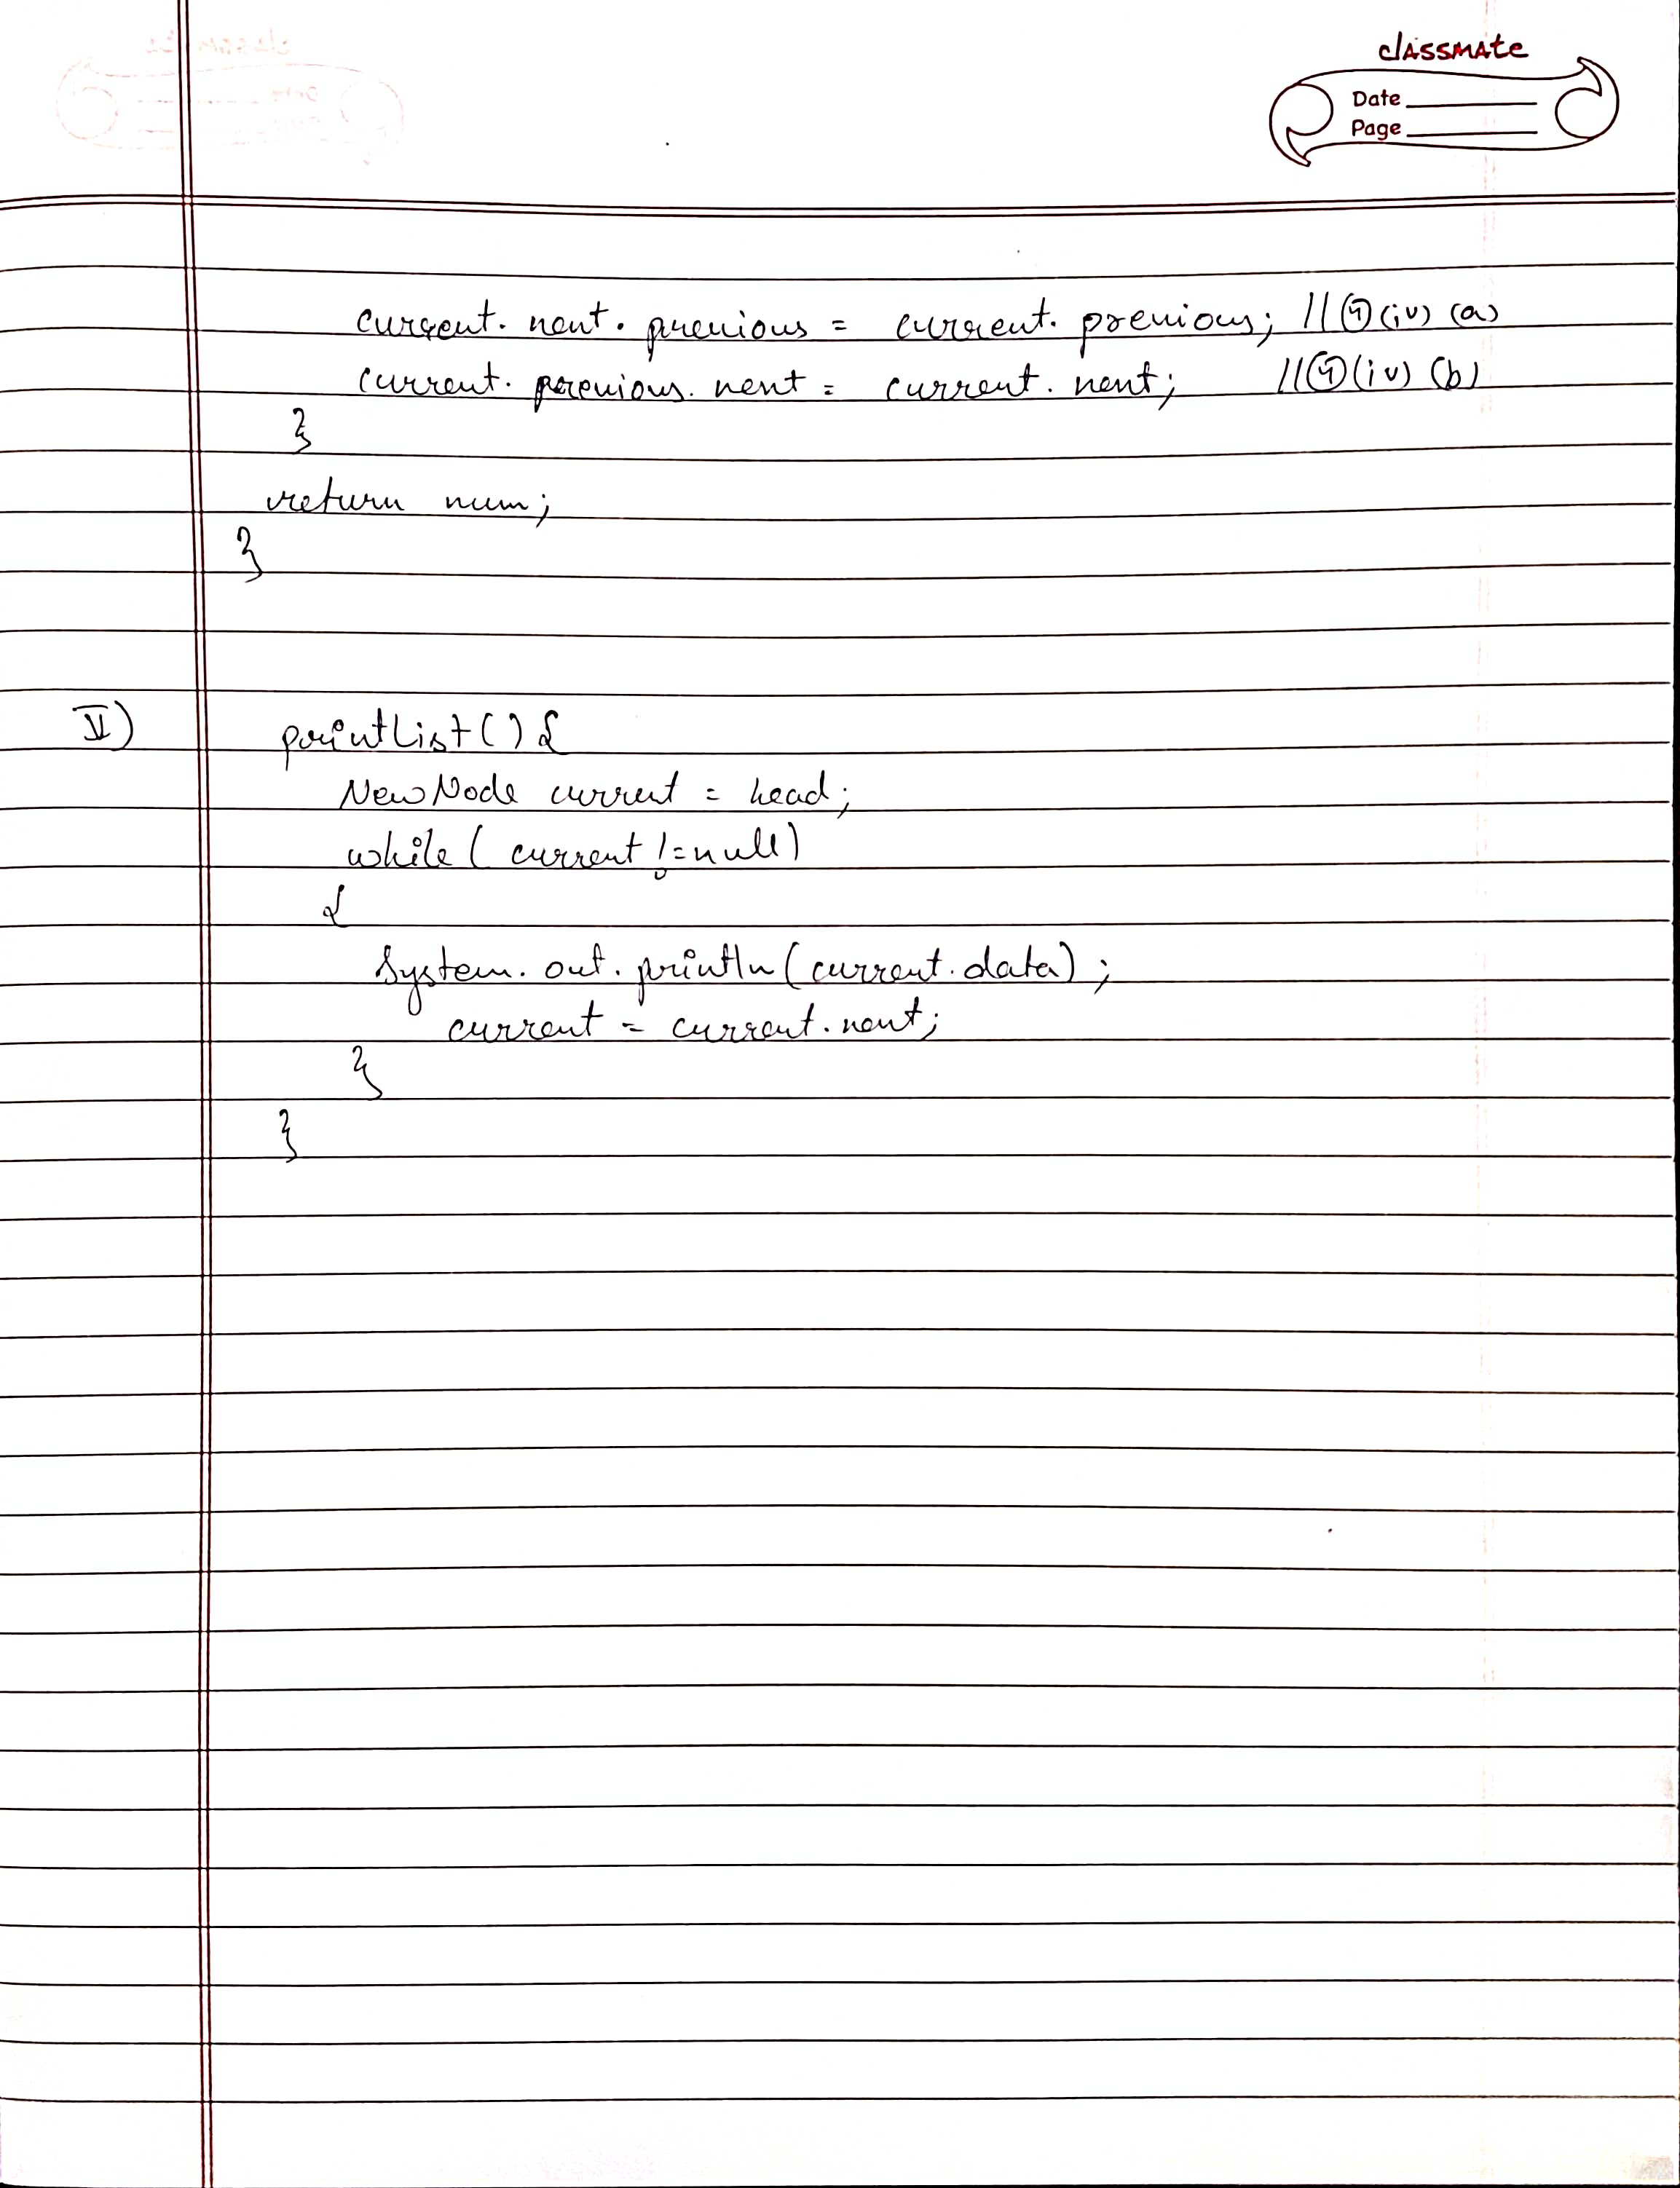 classmate
Date
Page
current. next. previous = current. previous; //④(iv) (a)
current. previous. next = current. next; //④(iv) (b)
}
return num;
}
V) printList() {
NewNode current = head;
while ( current != null)
{
System. out. println (current. data);
current = current. next;
}
}